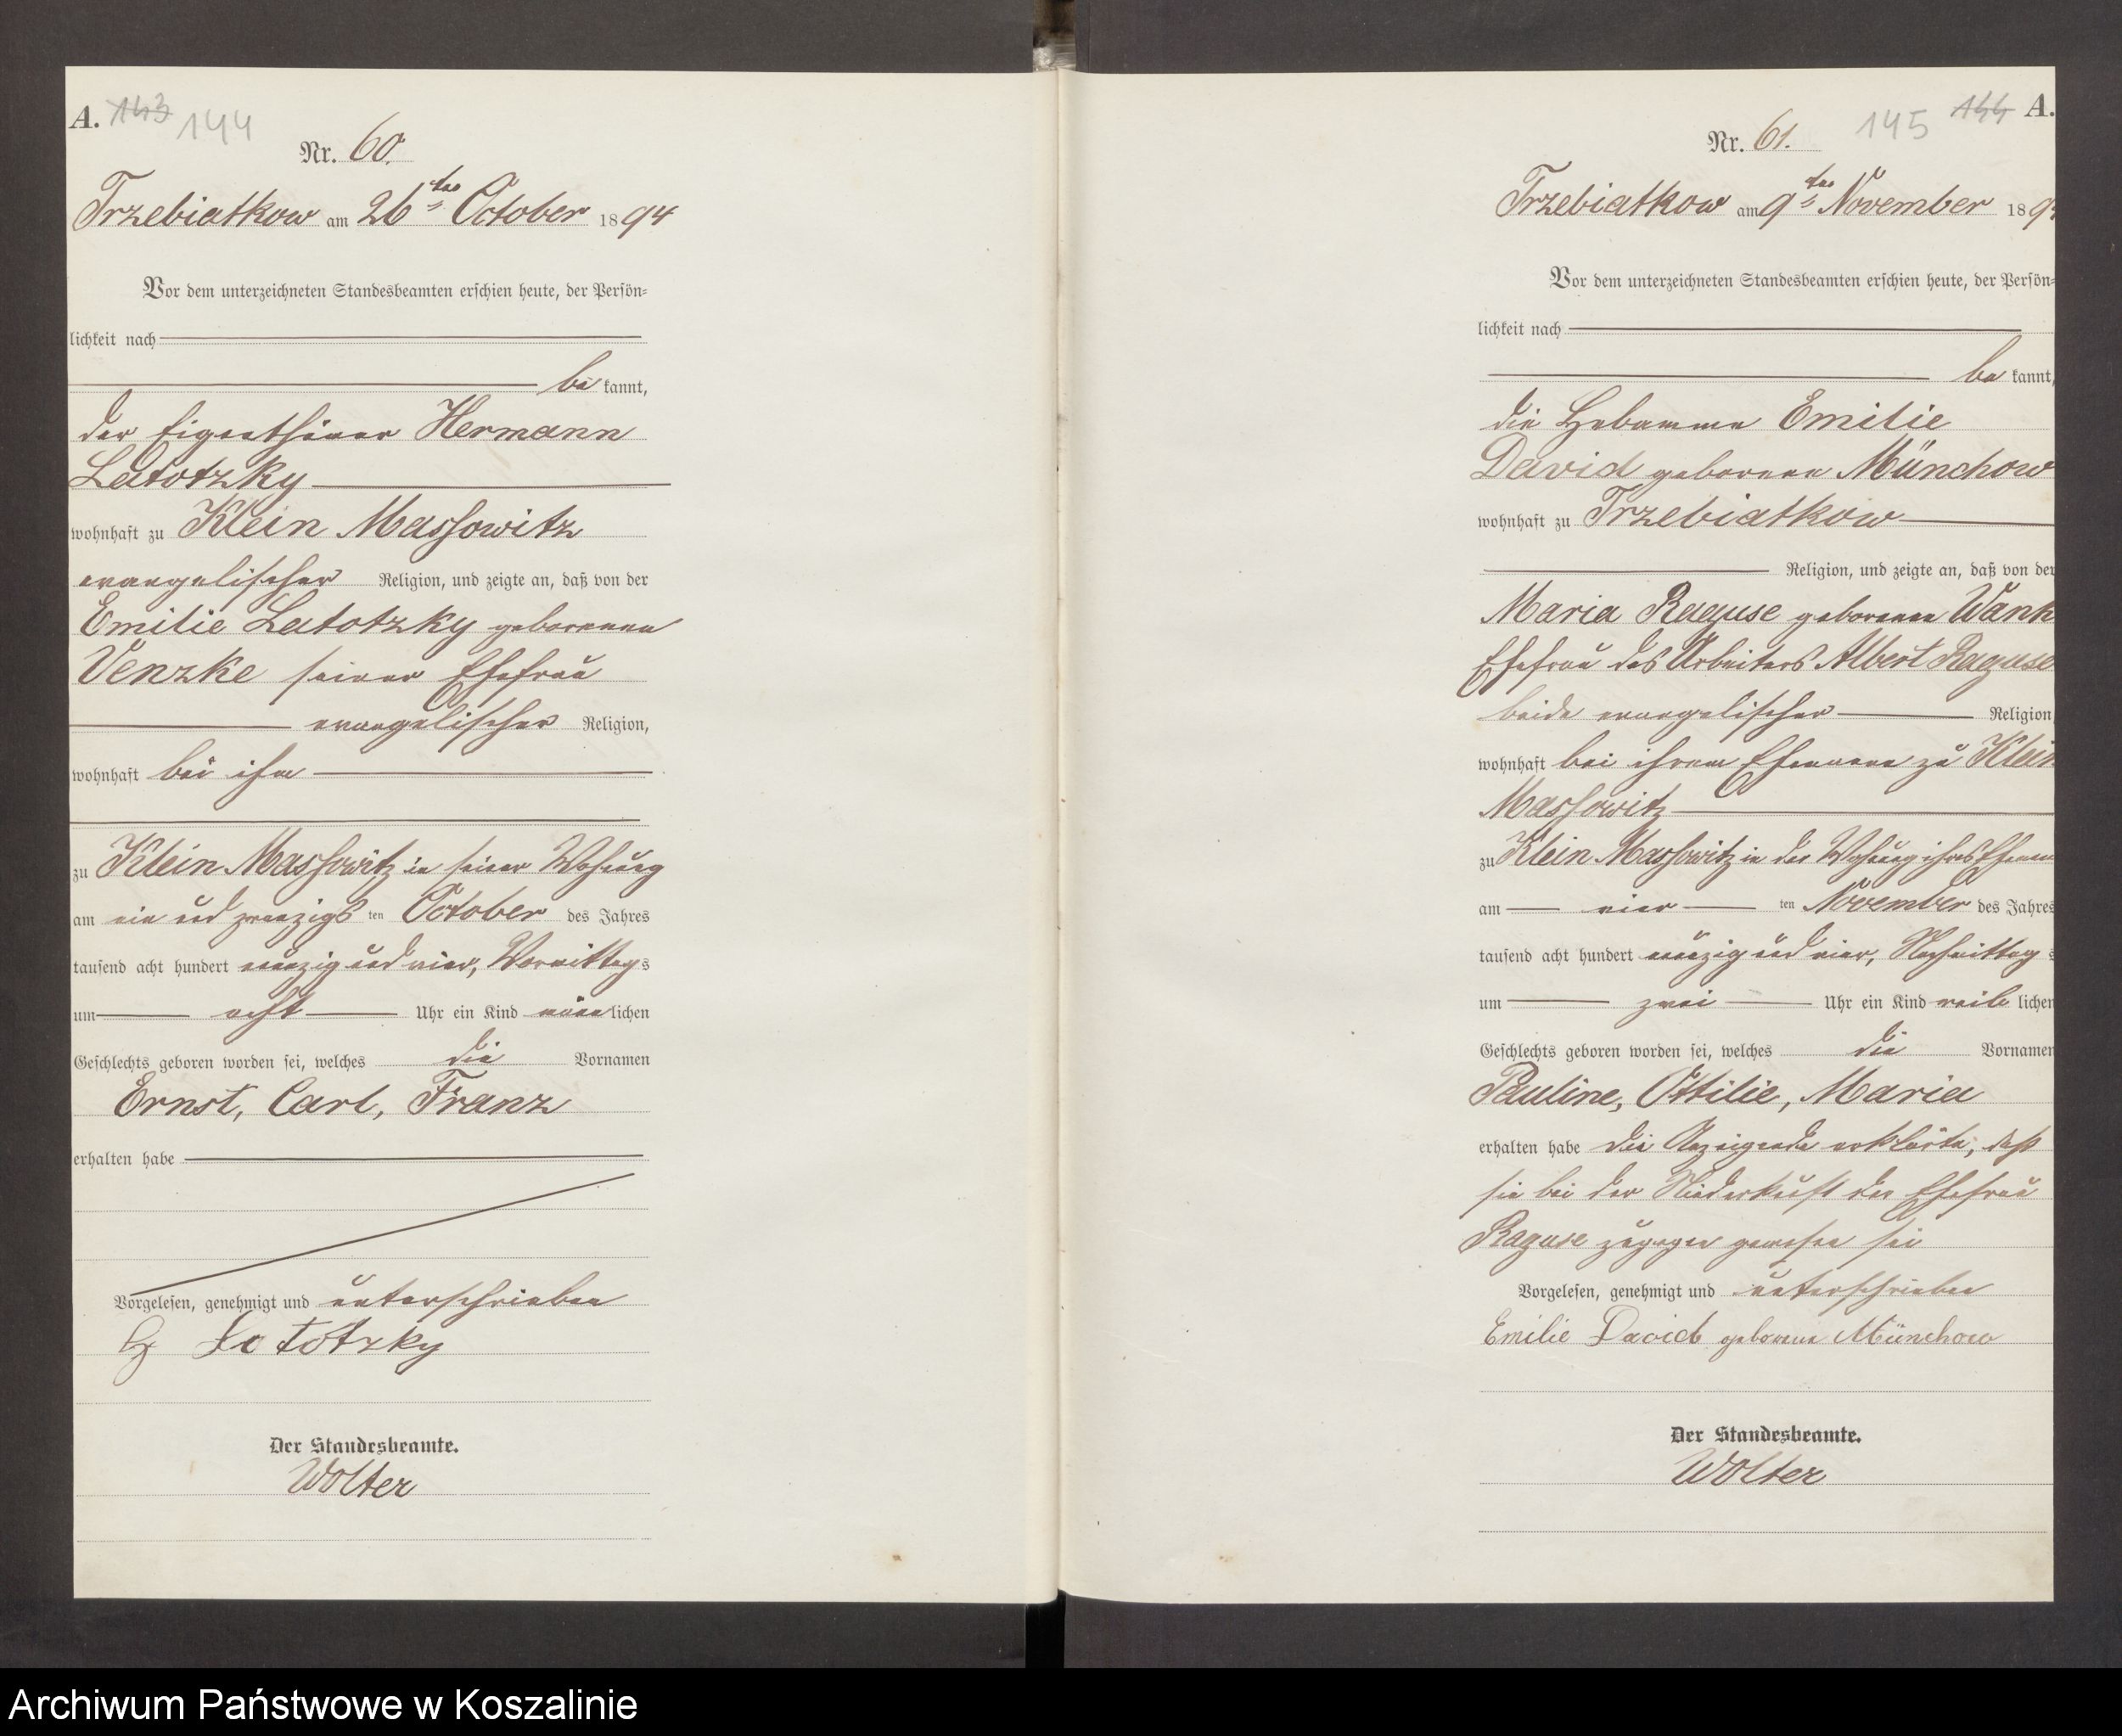 A. 143 144
Nr. 60.
Trzebiatkow am 26ten October 1894
Vor dem unterzeichneten Standesbeamten erschien heute, der Persön=
lichkeit nach
bekannt,
der Eigenthümer Hermann
Latotzky
wohnhaft zu Klein Massowitz
evangelischer Religion, und zeigte an, daß von der
Emilie Latotzky geborenen
Venzke seiner Ehefrau
evangelischer Religion,
wohnhaft bei ihm
zu Klein Massowitz in seiner Wohnung
am ein und zwanzigsten October des Jahres
tausend acht hundert neunzig und vier, Vormittags
um acht Uhr ein Kind männlichen
Geschlechts geboren worden sei, welches die Vornamen
Ernst, Carl, Franz
erhalten habe
Vorgelesen, genehmigt und unterschrieben
H Latotzky
Der Standesbeamte.
Wolter
145 144 A.
Nr. 61.
Trzebiatkow am 9ten November 189
Vor dem unterzeichneten Standesbeamten erschien heute, der Persön=
lichkeit nach
bekannt,
die Hebamme Emilie
David geborene Münchow
wohnhaft zu Trzebiatkow
Religion, und zeigte an, daß von der
Maria Raguse geborenen Wank
Ehefrau des Arbeiters Albert Raguse
beide evangelischer Religion,
wohnhaft bei ihrem Ehemann zu Klein
Massowitz
zu Klein Massowitz in der Wohnung ihres Ehem
am vierten November des Jahres
tausend acht hundert neunzig und vier, Nachmittags
um zwei Uhr ein Kind weiblichen
Geschlechts geboren worden sei, welches die Vornamen
Pauline, Ottilie, Maria
erhalten habe die Anzeigende erklärte, daß
sie bei der Niederkunft der Ehefrau
Raguse zugegen gewesen sei
Vorgelesen, genehmigt und unterschrieben
Emilie David geborene Münchow
Der Standesbeamte.
Wolter
Archiwum Państwowe w Koszalinie